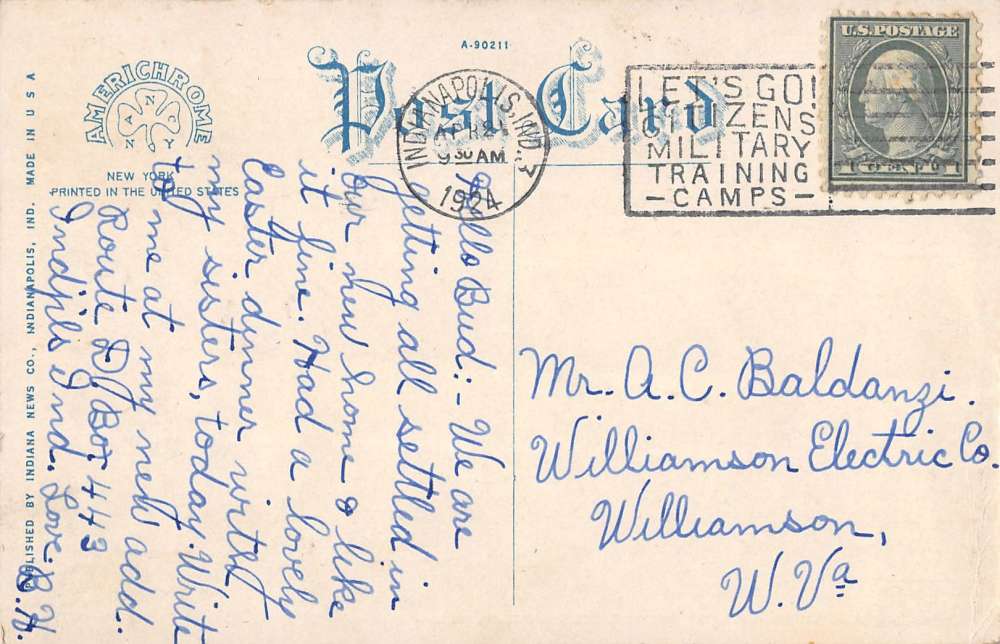 A-90211
Post Card
AMERICHROME
ANNY
NEW YORK
PRINTED IN THE UNITED STATES
PUBLISHED BY INDIANA NEWS CO., INDIANAPOLIS, IND. MADE IN U S A
INDIANAPOLIS, IND. 3
APR 21
9 30 AM
1924
LET'S GO!
CITIZENS
MILITARY
TRAINING
- CAMPS -
U.S. POSTAGE
1 CENT 1
Hello Bud:- We are
getting all settled in
our new home & like
it fine. Had a lovely
Easter dynner with
my sisters, today. Write
to me at my new add.
Route D, Box 443
Indpls Ind. Love. B.H.
Mr. A. C. Baldanzi.
Williamson Electric Co.
Williamson,
W. Va